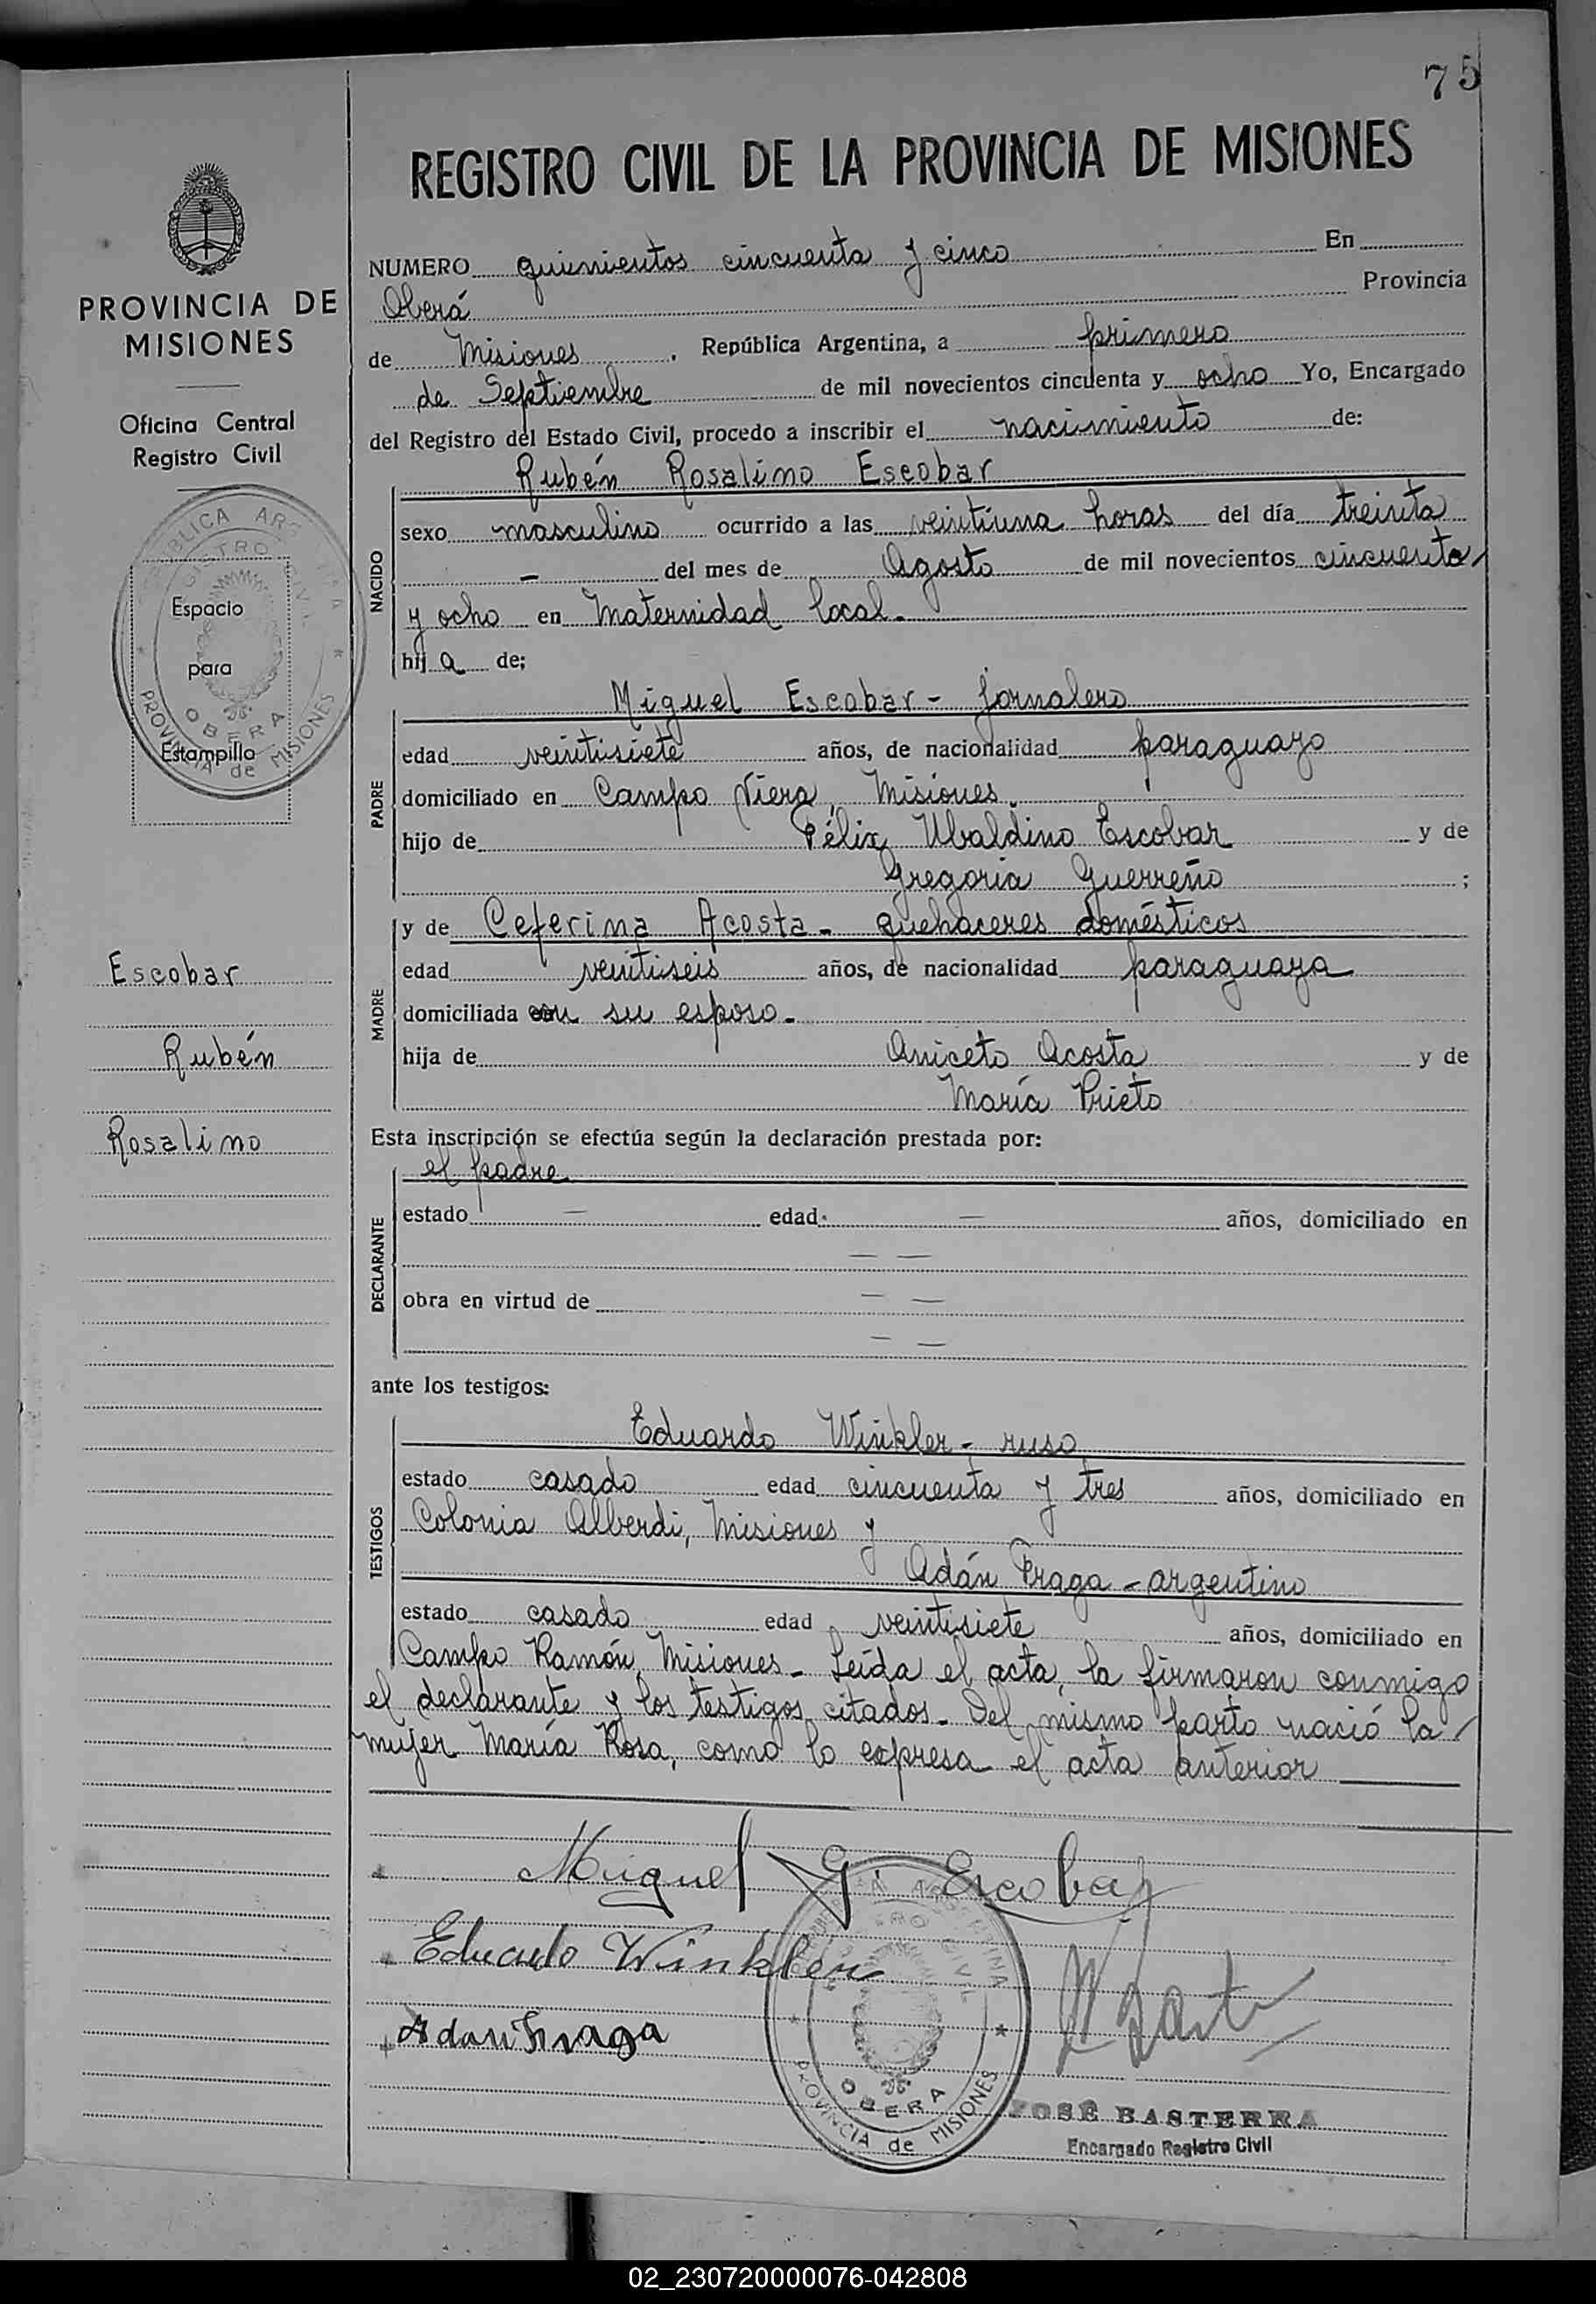 75
REGISTRO CIVIL DE LA PROVINCIA DE MISIONES
PROVINCIA DE
MISIONES
Oficina Central
Registro Civil
REPUBLICA ARGENTINA
REGISTRO CIVIL
OBERA
PROVINCIA de MISIONES
Espacio
para
Estampillo
Escobar
Rubén
Rosalino
NUMERO quinientos cincuenta y cinco En
Oberá Provincia
de Misiones, República Argentina, a primero
de Septiembre de mil novecientos cincuenta y ocho Yo, Encargado
del Registro del Estado Civil, procedo a inscribir el nacimiento de:
NACIDO
Rubén Rosalino Escobar
sexo masculino ocurrido a las veintiuna horas del día treinta
— del mes de Agosto de mil novecientos cincuenta
y ocho en Maternidad local.
hij a de;
PADRE
Miguel Escobar - jornalero
edad veintisiete años, de nacionalidad paraguayo
domiciliado en Campo Viera, Misiones.
hijo de Félix Ubaldino Escobar y de
Gregoria Guerreño ;
MADRE
y de Ceferina Acosta - quehaceres domésticos
edad veintiseis años, de nacionalidad paraguaya
domiciliada con su esposo.
hija de Aniceto Acosta y de
María Prieto
Esta inscripción se efectúa según la declaración prestada por:
DECLARANTE
el padre
estado — edad — años, domiciliado en
— —
obra en virtud de — —
— —
ante los testigos:
TESTIGOS
Eduardo Winkler - ruso
estado casado edad cincuenta y tres años, domiciliado en
Colonia Alberdi, Misiones y
Adán Fraga - argentino
estado casado edad veintisiete años, domiciliado en
Campo Ramón, Misiones. Leída el acta, la firmaron conmigo
el declarante y los testigos citados. Del mismo parto nació la
mujer María Rosa, como lo expresa el acta anterior
Miguel G. Escobar
Eduardo Winkler
Adan Fraga
REGISTRO CIVIL
OBERA
PROVINCIA de MISIONES
JOSÉ BASTERRA
Encargado Registro Civil
02_230720000076-042808